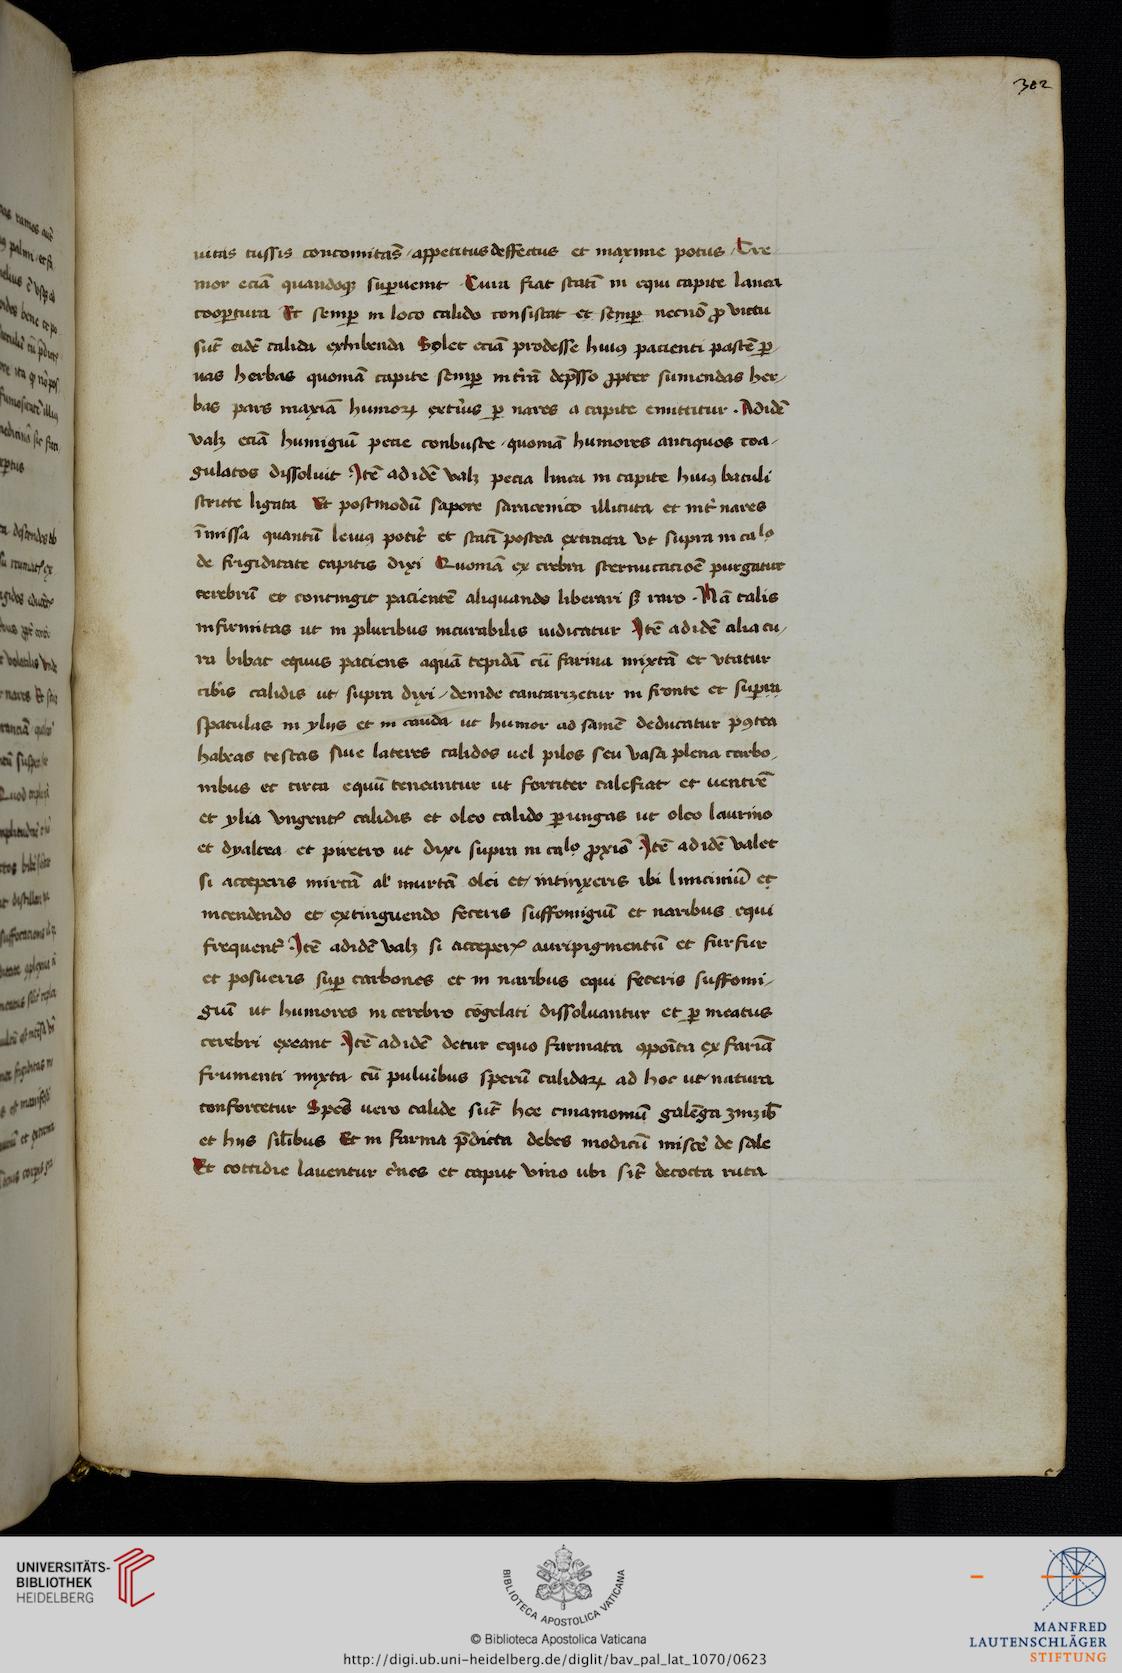 302
uitas tussis concomitās appetitus deffectus et maxime potus Tre
mor eciā quandoq; supuenit Cura fiat statī in equi capite lanea
coopertura Et semp in loco calido consistat et semp necnō p victu
sūt eidē calida exhibenda Solet eciā prodesse huiꝯ pacienti pastē p
uas herbas quoniā capite semp in tͥrā dep̄sso ꝓpter sumendas her
bas pars maxīā humoꝝ exti᷑us p nares a capite emittitur Ad idē
valꝫ eciā humigiū pecie conbuste quoniā humores antiquos coa
gulatos dissoluit Itē ad idē valꝫ pecia linea in capite huiꝯ baculi
stricte ligata Et postmodū sapore saracenico illituta et int᷑ nares
īmissa quantū leuiꝯ potit᷑ et statī postea extracta vt supra in calo
de frigiditate capitis dixi Quoniā ex crebra sternutacioē purgatur
cerebrū et contingit pacientē aliquando liberari sꝫ raro Nā talis
infirmitas ut in pluribus incurabilis iudicatur Itē ad idē alia cu
ra bibat equus paciens aquā tepidā cū farina mixtā et vtatur
cibis calidis ut supra dixi deinde cautarizetur in fronte et supra
spatulas in ylijs et in cauda ut humor ad saniē deducatur pꝯtea
habeas testas siue lateres calidos uel pilos seu vasa plena carbo
nibus et circa equū teneantur ut fortiter calefiat et uentrē
et ylia vngentꝭ calidis et oleo calido pungas ut oleo laurino
et dyaltea et piretro ut dixi supra in calo ꝓxiō Itē ad idē valet
si acceperis mircā al' murtā olei et intinxeris ibi linciniū et
incendendo et extinguendo feceris suffomigiū et naribus equi
frequent᷑ Itē ad idē valꝫ si acceperꝭ auripigmentū et furfur
et posueris sup carbones et in naribus equi feceris suffomi
giū ut humores in cerebro cōgelati dissoluantur et p meatus
cerebri exeant Itē ad idē detur equo farinata ꝯpoīta ex farīā
frumenti mixta cū puluibus sperū calidaꝝ ad hoc ut natura
confortetur Spēs uero calide sūt hee cinamomū galēga zinzib̄
et hijs sil̄ibus Et in farina p̄dicta debes modicū misce᷑ de sale
Et cottidie lauentur c᷑nes et caput vino ubi sit᷑ decocta ruta
UNIVERSITÄTS-
BIBLIOTHEK
HEIDELBERG
BIBLIOTECA APOSTOLICA VATICANA
© Biblioteca Apostolica Vaticana
http://digi.ub.uni-heidelberg.de/diglit/bav_pal_lat_1070/0623
MANFRED
LAUTENSCHLÄGER
STIFTUNG